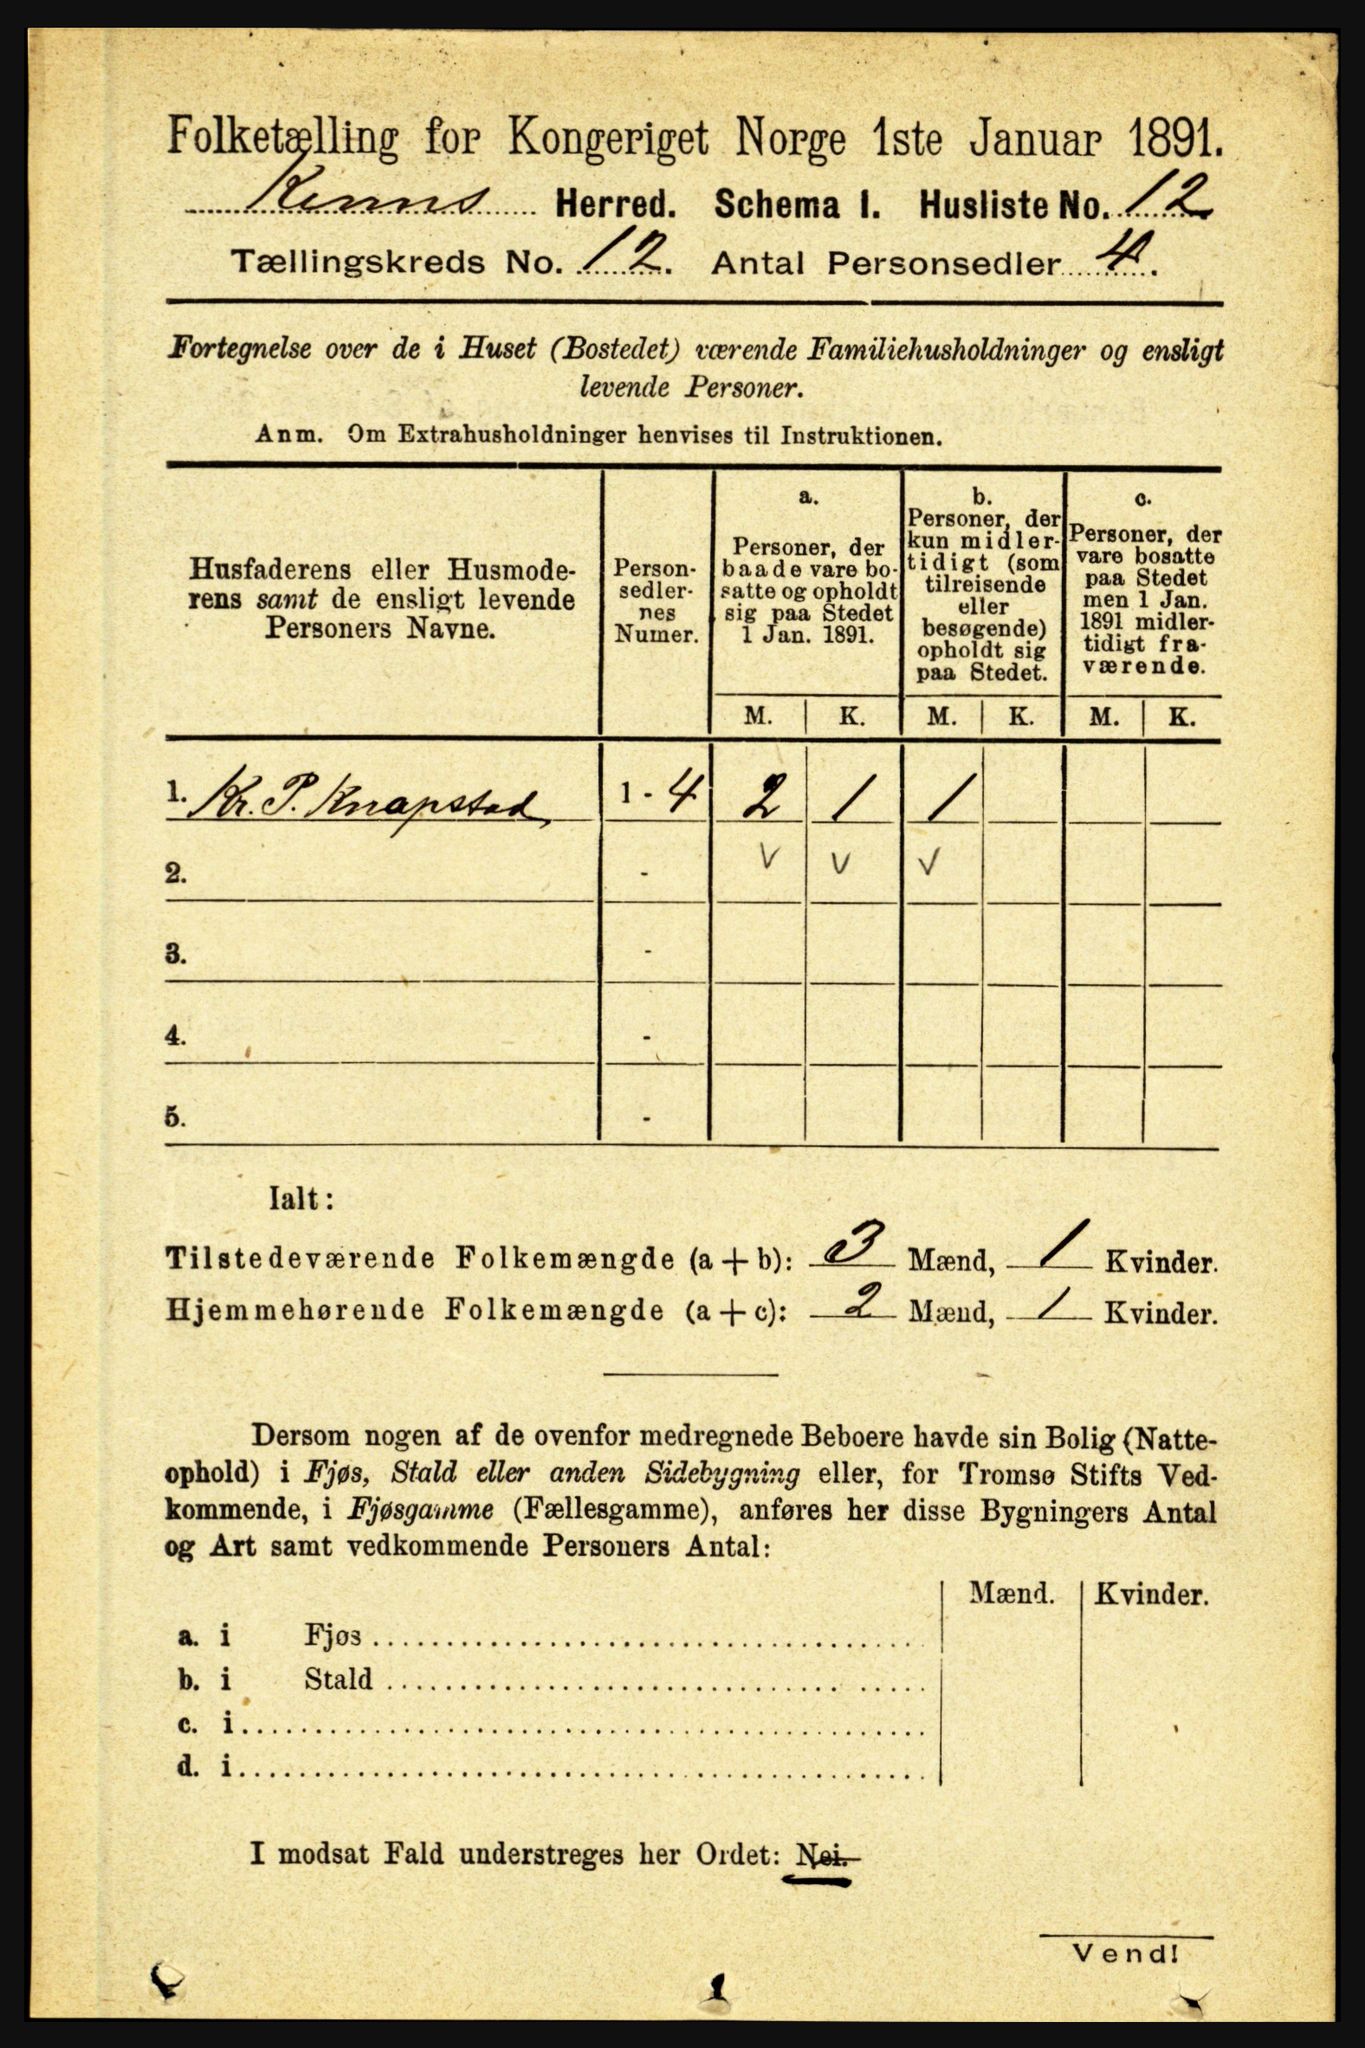 Folketælling for Kongeriget Norge 1ste Januar 1891.
Kinns Herred. Schema I. Husliste No. 12
Tællingskreds No. 12. Antal Personsedler 4.
Fortegnelse over de i Huset (Bostedet) værende Familiehusholdninger og ensligt
levende Personer.
Anm. Om Extrahusholdninger henvises til Instruktionen.
Husfaderens eller Husmode-
rens samt de ensligt levende
Personers Navne.
Person-
sedler-
nes
Numer.
a.
Personer, der
baade vare bo-
satte og opholdt
sig paa Stedet
1 Jan. 1891.
b.
Personer, der
kun midler-
tidigt (som
tilreisende
eller
besøgende)
opholdt sig
paa Stedet.
c.
Personer, der
vare bosatte
paa Stedet
men 1 Jan.
1891 midler-
tidigt fra-
værende.
M. K. M. K. M. K.
1. Kr. P. Knapstad 1 - 4 2 1 1
2. - v v v
3. -
4. -
5. -
Ialt:
Tilstedeværende Folkemængde (a + b): 3 Mænd, 1 Kvinder.
Hjemmehørende Folkemængde (a + c): 2 Mænd, 1 Kvinder.
Dersom nogen af de ovenfor medregnede Beboere havde sin Bolig (Natte-
ophold) i Fjøs, Stald eller anden Sidebygning eller, for Tromsø Stifts Ved-
kommende, i Fjøsgamme (Fællesgamme), anføres her disse Bygningers Antal
og Art samt vedkommende Personers Antal:
Mænd. Kvinder.
a. i Fjøs
b. i Stald
c. i
d. i
I modsat Fald understreges her Ordet: Nei.
Vend!